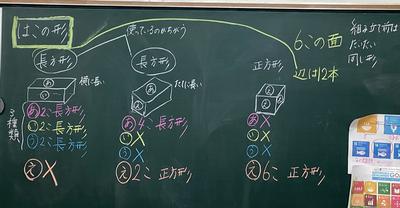 はこの形
使っているのがちがう
長方形
長方形
正方形
6この面
辺は12本
組み立て前は
だいたい
同じ形
横に長い
たてに長い
あ
い
う
あ
い
3種類
あ2こ長方形
い2こ長方形
う2こ長方形
え X
あ4こ長方形
い X
う X
え2こ 正方形
あ X
い X
う X
え6こ 正方形